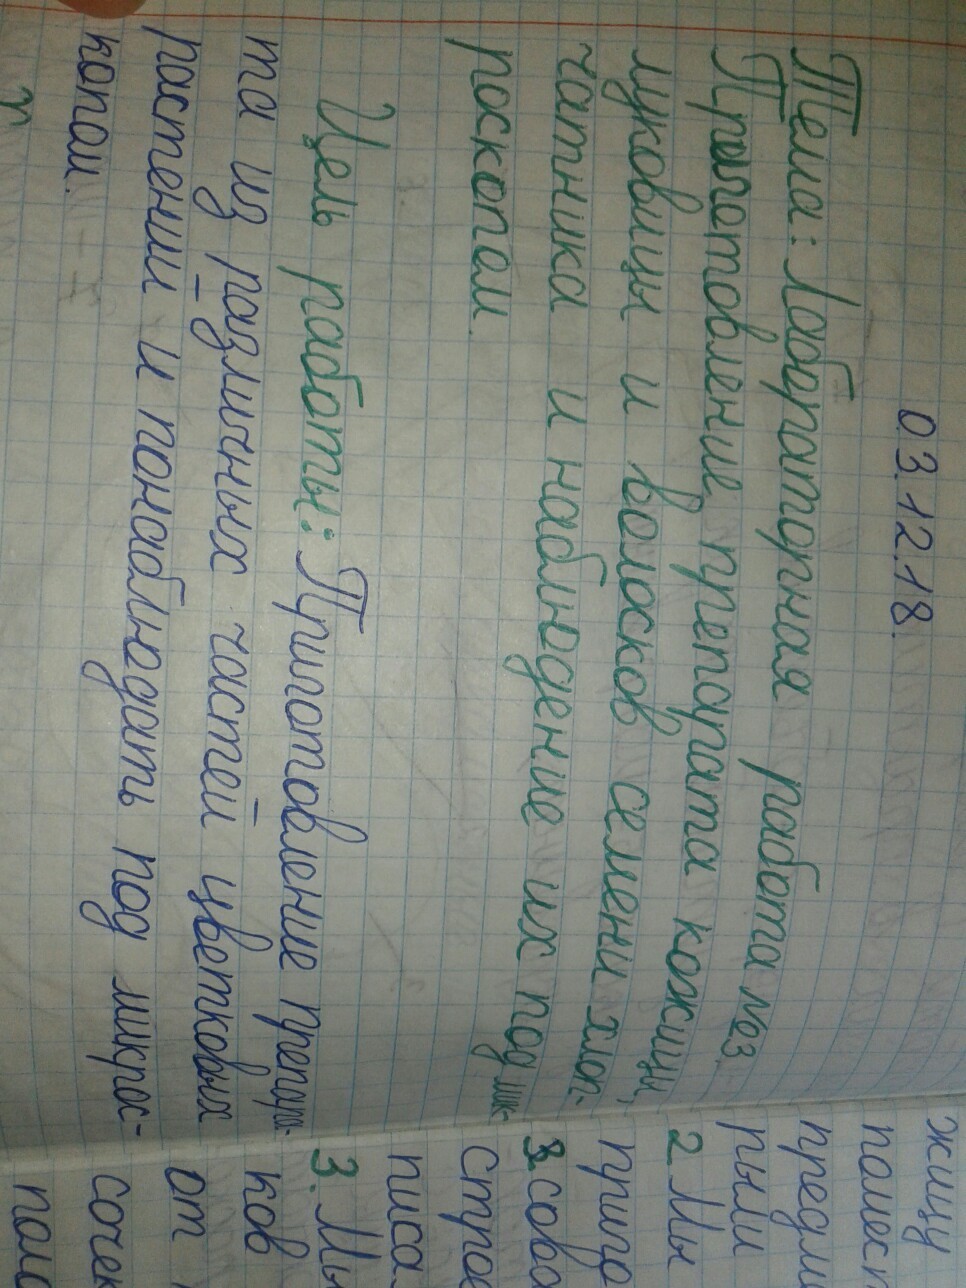 03.12.18.
Тема: Лабораторная работа №3.
Приготовление препарата кожицы
луковицы и волосков семени хлоп-
чатника и наблюдение их под мик-
роскопом.
Цель работы: Приготовление препара-
та из различных частей цветковых
растении и понаблюдать под микрос-
копом.
жицу
помест
предм
рыли
2. Мы
приго
сова
стро
писа-
3. Мы
ков
от
сочек
пом